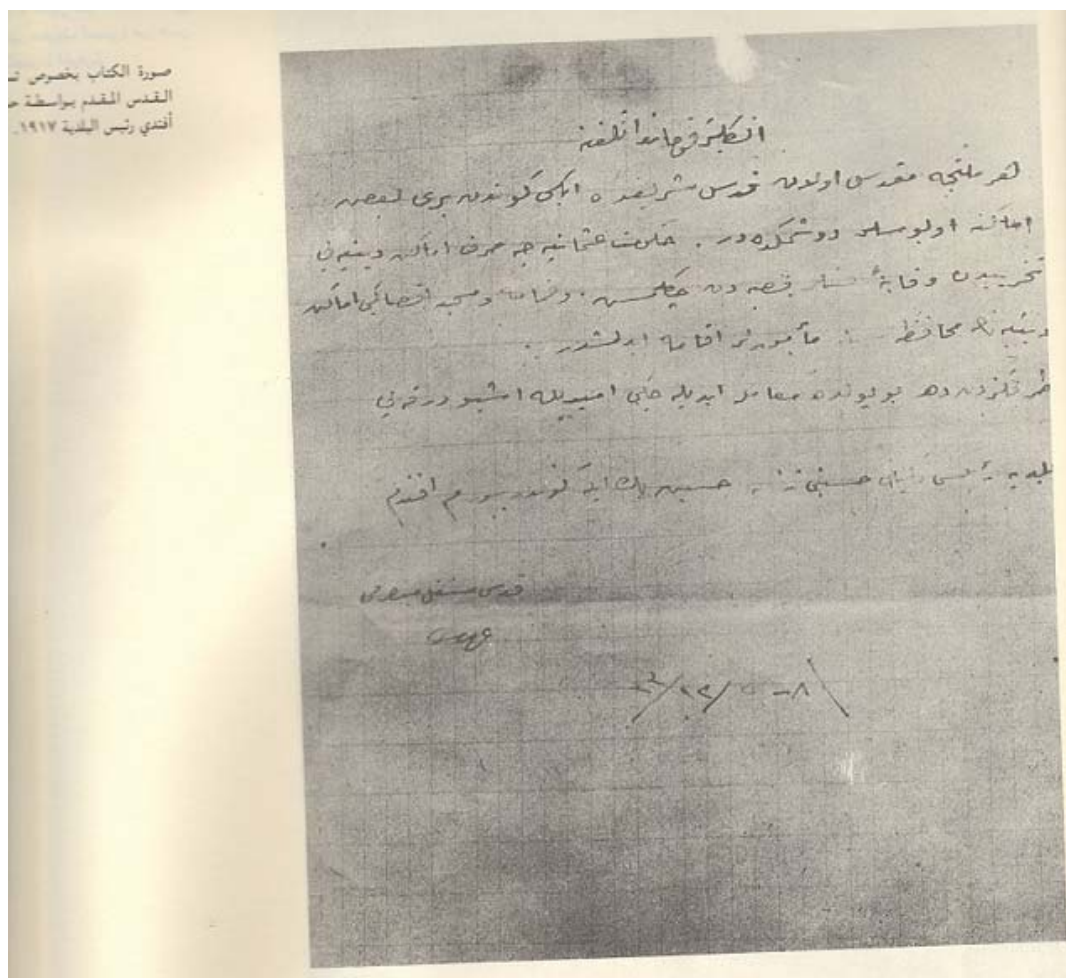 صورة الكتاب بخصوص
القدس المقدم بواسطة
أفندي رئيس البلدية ١٩١٧.
انكليز قوماندانلغنه
هر ملتجه مقدس اولان قدس شريفده ايكى كوندن برى بعض
اماكنه اوبوسلر دوشمكده در . حكومت عثمانيه جه صرف اماكن دينيه يى
تخريبدن وقاية قصبه دن چكلمش . و مسجد اقصا كبى اماكن
دينيه نك محافظه مأمورلر اقامه ايدلمشدر .
طرفكزدن ده بو يولده معامله ايديله جكى اميديله اشبو ورقه يى
بلديه رئيسى حسينى زاده حسين بك ايله كوندرييورم افندم
قدس مستقل متصرفى
عزت